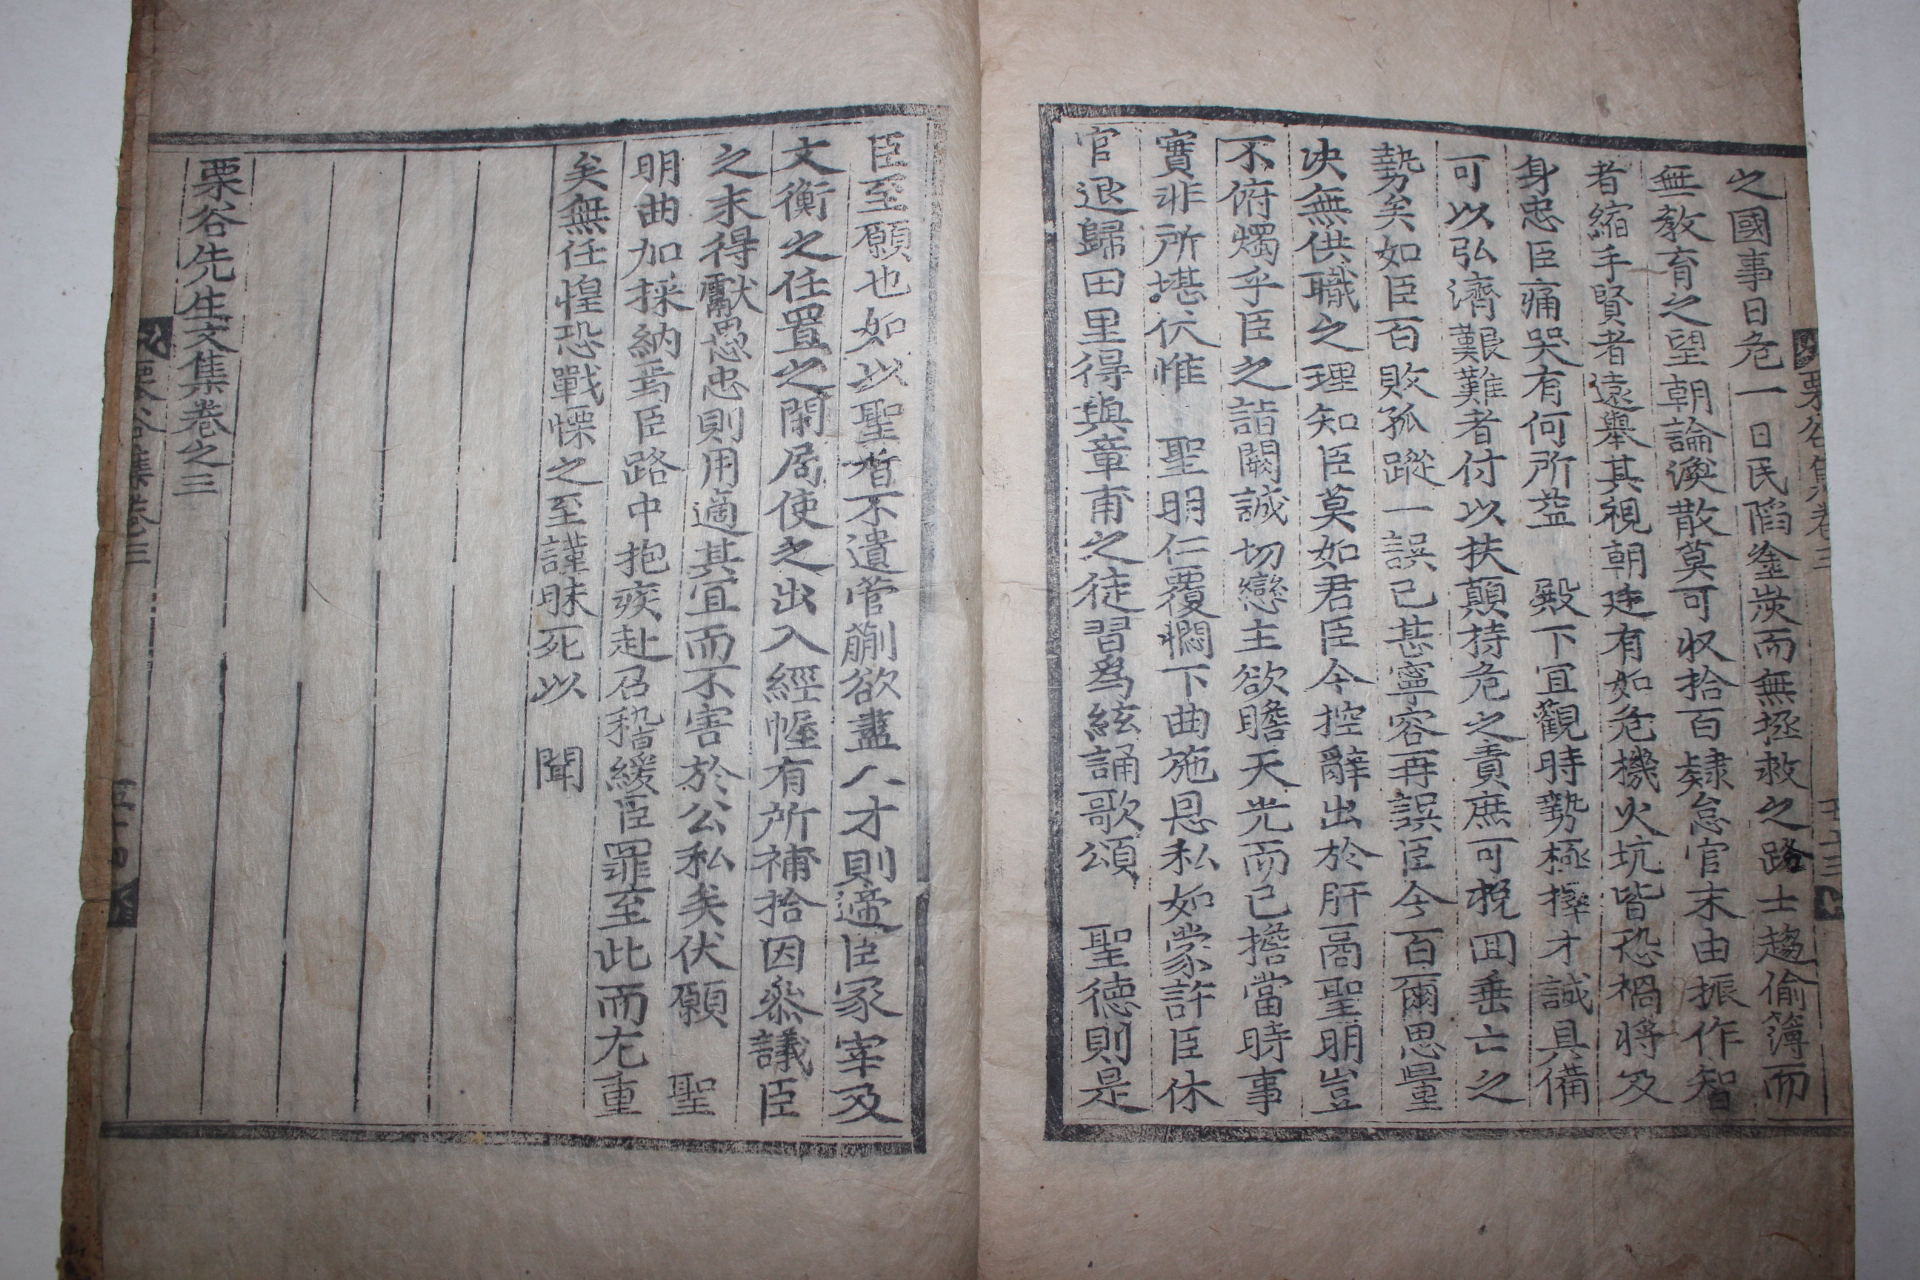 之國事日危一日民陷塗炭而無拯救之路士趨偷薄而
無敎育之望朝論渙散莫可收拾百隷怠官末由振作智
者縮手賢者遠擧其視朝廷有如危機火坑皆恐禍將及
身忠臣痛哭有何所益 殿下宜觀時勢極擇才誠具備
可以弘濟艱難者付以扶顚持危之責庶可挽回垂亡之
勢矣如臣百敗孤蹤一誤已甚寧容再誤臣今百爾思量
决無供職之理知臣莫如君臣今控辭出於肝膈聖明豈
不俯燭乎臣之詣闕誠切戀主欲瞻天光而已擔當時事
實非所堪伏惟 聖明仁覆憫下曲施恩私如蒙許臣休
官退歸田里得與章甫之徒習爲絃誦歌頌 聖德則是
栗谷集卷三
五十三
臣至願也如以聖晢不遺菅蒯欲盡人才則遞臣冢宰及
文衡之任置之閑局使之出入經幄有所補拾因參議臣
之末得獻愚忠則用適其宜而不害於公私矣伏願 聖
明曲加採納焉臣路中抱疾赴召稽緩臣罪至此而尤重
矣無任惶恐戰慄之至謹昧死以 聞
栗谷先生文集卷之三
栗谷集卷三
五十四